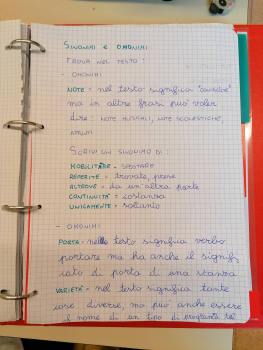 SINONIMI E OMONIMI
TROVA NEL TESTO:
- OMONIMI
NOTE = nel testo significa "
ma in altre frasi puo' voler
dire: NOTE MUSICALI, NOTE SCOLASTICHE,
SCRIVI UN SINONIMO DI:
= SPOSTARE
REPERITE = trovate, prese
ALTROVE = da un'altra parte
CONTINUITÀ = costanza
UNICAMENTE = soltanto
- OMONIMI
PORTA = nello testo significa verbo
portare ma ha anche il signifi
cato di porta di una stanza
VARIETÀ = nel testo significa tante
cose diverse, ma può anche essere
il nome di un tipo di programma tel